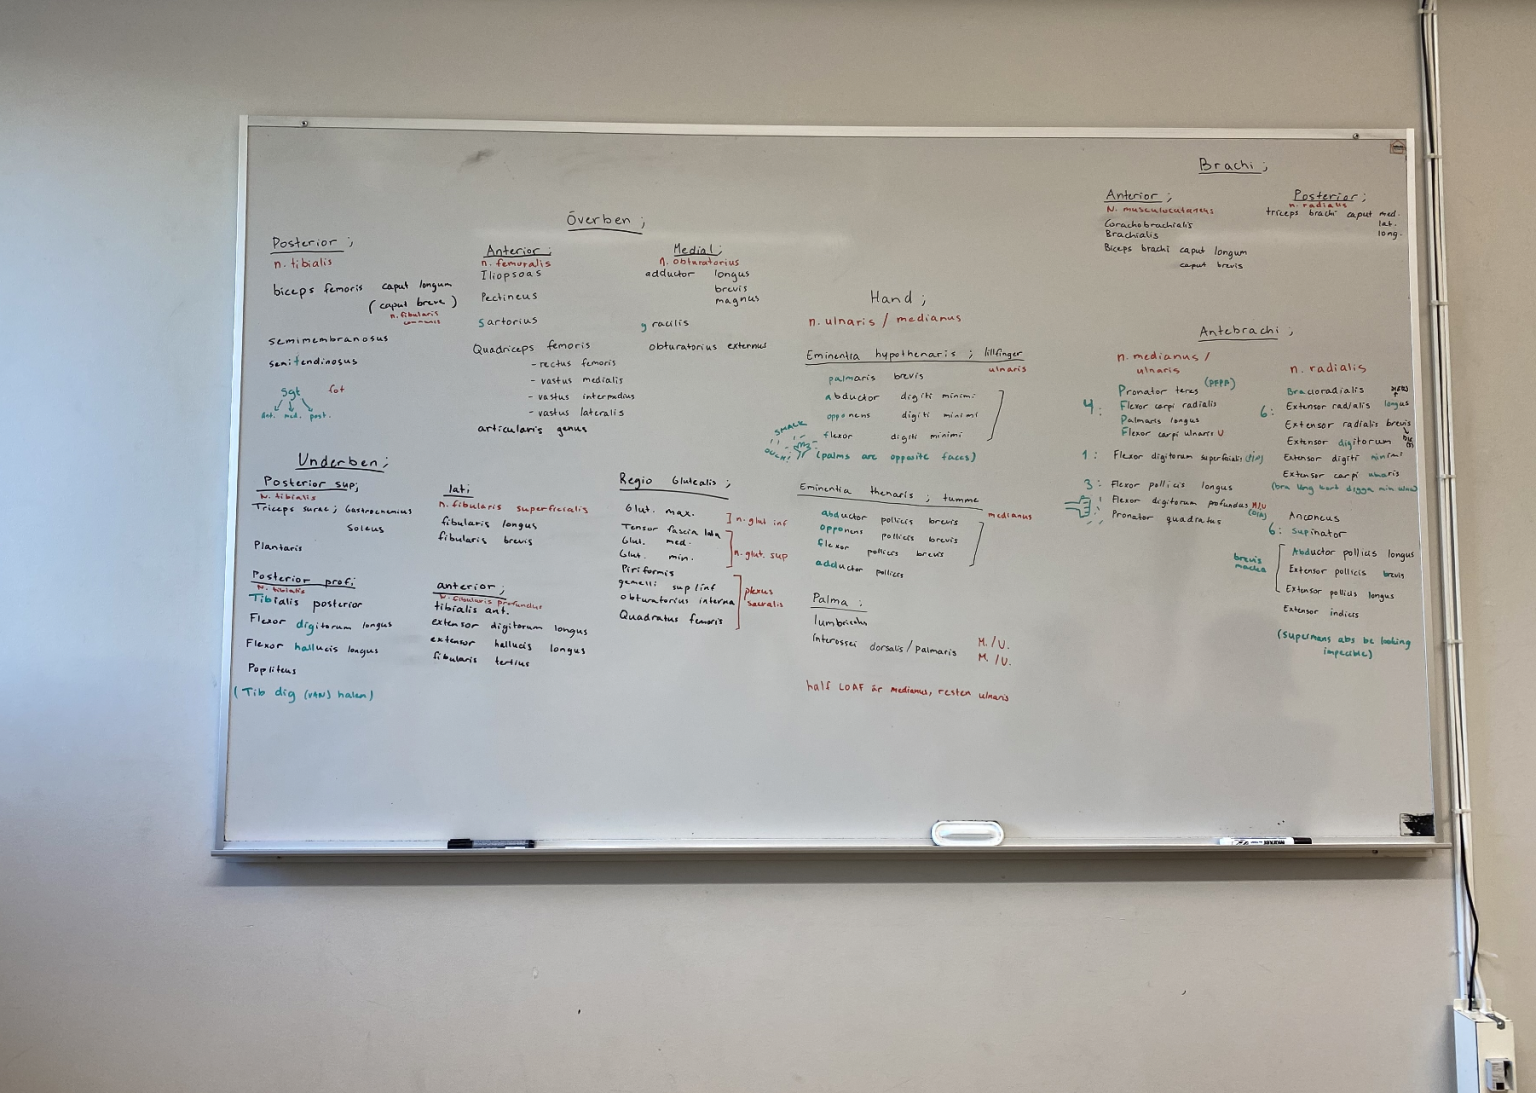 Överben ;
Posterior ;
n. tibialis
biceps femoris caput longum
(caput breve)
n. fibularis
communis
semimembranosus
semitendinosus
sgt fot
ant. med. post.
Anterior ;
n. femoralis
Iliopsoas
Pectineus
Sartorius
Quadriceps femoris
- rectus femoris
- vastus medialis
- vastus intermedius
- vastus lateralis
articularis genus
Medial ;
n. obturatorius
adductor longus
brevis
magnus
gracilis
obturatorius externus
Underben ;
Posterior sup;
N. tibialis
Triceps surae ; Gastrocnemius
Soleus
Plantaris
Posterior prof;
N. tibialis
Tibialis posterior
Flexor digitorum longus
Flexor hallucis longus
Popliteus
(Tib dig (VAN) halen)
lat;
n. fibularis superficialis
fibularis longus
fibularis brevis
anterior ;
N. fibularis profundus
tibialis ant.
extensor digitorum longus
extensor hallucis longus
fibularis tertius
Regio Glutealis ;
Glut. max.
n. glut inf
Tensor fascia lata
Glut. med.
Glut. min.
n. glut. sup
Piriformis
gemelli sup/inf
obturatorius interna
Quadratus femoris
plexus
sacralis
Hand ;
n. ulnaris / medianus
Eminentia hypothenaris ; lillfinger
ulnaris
palmaris brevis
abductor digiti minimi
opponens digiti minimi
flexor digiti minimi
SMACK
OUCH!
(palms are opposite faces)
Eminentia thenaris ; tumme
medianus
abductor pollicis brevis
opponens pollicis brevis
flexor pollicis brevis
adductor pollicis
Palma ;
lumbricales
interossei dorsalis/palmaris
M./U.
M./U.
half LOAF är medianus, resten ulnaris
Brachi ;
Anterior ;
N. musculocutaneus
Corachobrachialis
Brachialis
Biceps brachi caput longum
caput brevis
Posterior ;
n. radialis
triceps brachi caput med.
lat.
long.
Antebrachi ;
n. medianus /
ulnaris
4:
Pronator teres (PFPF)
Flexor carpi radialis
Palmaris longus
Flexor carpi ulnaris U
1: Flexor digitorum superficialis
3: Flexor pollicis longus
Flexor digitorum profundus M/U
Pronator quadratus
n. radialis
6:
Bracioradialis
Extensor radialis longus
Extensor radialis brevis
Extensor digitorum
Extensor digiti minimi
Extensor carpi ulnaris
(bra lång kort digga min ulna)
Anconeus
6: supinator
Abductor pollicis longus
Extensor pollicis brevis
Extensor pollicis longus
Extensor indicis
brevis
macka
(supermans abs be looking
impecible)